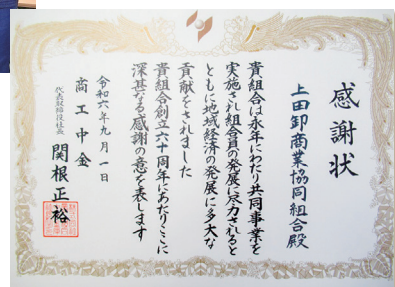 感謝状
上田卸商業協同組合殿
貴組合は永年にわたり共同事業を
実施され組合員の発展に尽力されると
ともに地域経済の発展に多大な
貢献をされました
貴組合創立六十周年にあたりここに
深甚なる感謝の意を表します
令和六年九月一日
商工中金
代表取締役社長
関根正裕